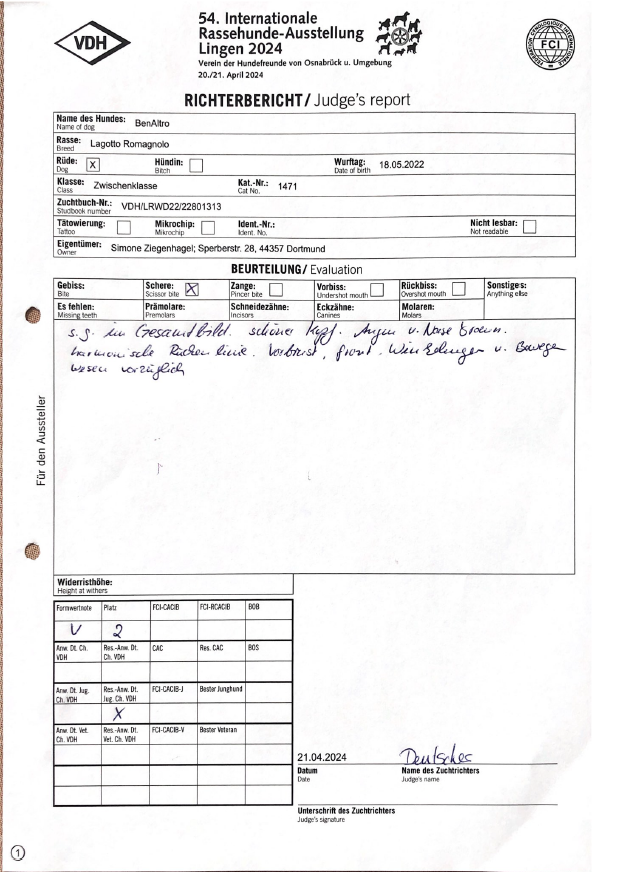 VDH
54. Internationale
Rassehunde-Ausstellung
Lingen 2024
Verein der Hundefreunde von Osnabrück u. Umgebung
20./21. April 2024
FCI
RICHTERBERICHT/ Judge's report
Name des Hundes: BenAltro
Name of dog
Rasse: Lagotto Romagnolo
Breed
Rüde: X Hündin: Wurftag: 18.05.2022
Dog Bitch Date of birth
Klasse: Zwischenklasse Kat.-Nr.: 1471
Class Cat No.
Zuchtbuch-Nr.: VDH/LRWD22/22801313
Studbook number
Tätowierung: Mikrochip: Ident.-Nr.: Nicht lesbar:
Tattoo Mikrochip Ident. No. Not readable
Eigentümer: Simone Ziegenhagel; Sperberstr. 28, 44357 Dortmund
Owner
BEURTEILUNG/ Evaluation
Gebiss: Schere: X Zange: Vorbiss: Rückbiss: Sonstiges:
Bite Scissor bite Pincer bite Undershot mouth Overshot mouth Anything else
Es fehlen: Prämolare: Schneidezähne: Eckzähne: Molaren:
Missing teeth Premolars Incisors Canines Molars
s.g. im Gesamtbild. schöner Kopf. Augen u. Nase braun.
harmonische Rückenlinie. Vorbrust, front. Winkelungen u. Bewege
wesen vorzüglich
Für den Aussteller
Widerristhöhe:
Height at withers
Formwertnote Platz FCI-CACIB FCI-RCACIB BOB
V 2
Anw. Dt. Ch. VDH Res.-Anw. Dt. Ch. VDH CAC Res. CAC BOS
Anw. Dt. Jug. Ch. VDH Res.-Anw. Dt. Jug. Ch. VDH FCI-CACIB-J Bester Junghund
X
Anw. Dt. Vet. Ch. VDH Res.-Anw. Dt. Vet. Ch. VDH FCI-CACIB-V Bester Veteran
21.04.2024 Deutscher
Datum Name des Zuchtrichters
Date Judge's name
Unterschrift des Zuchtrichters
Judge's signature
1